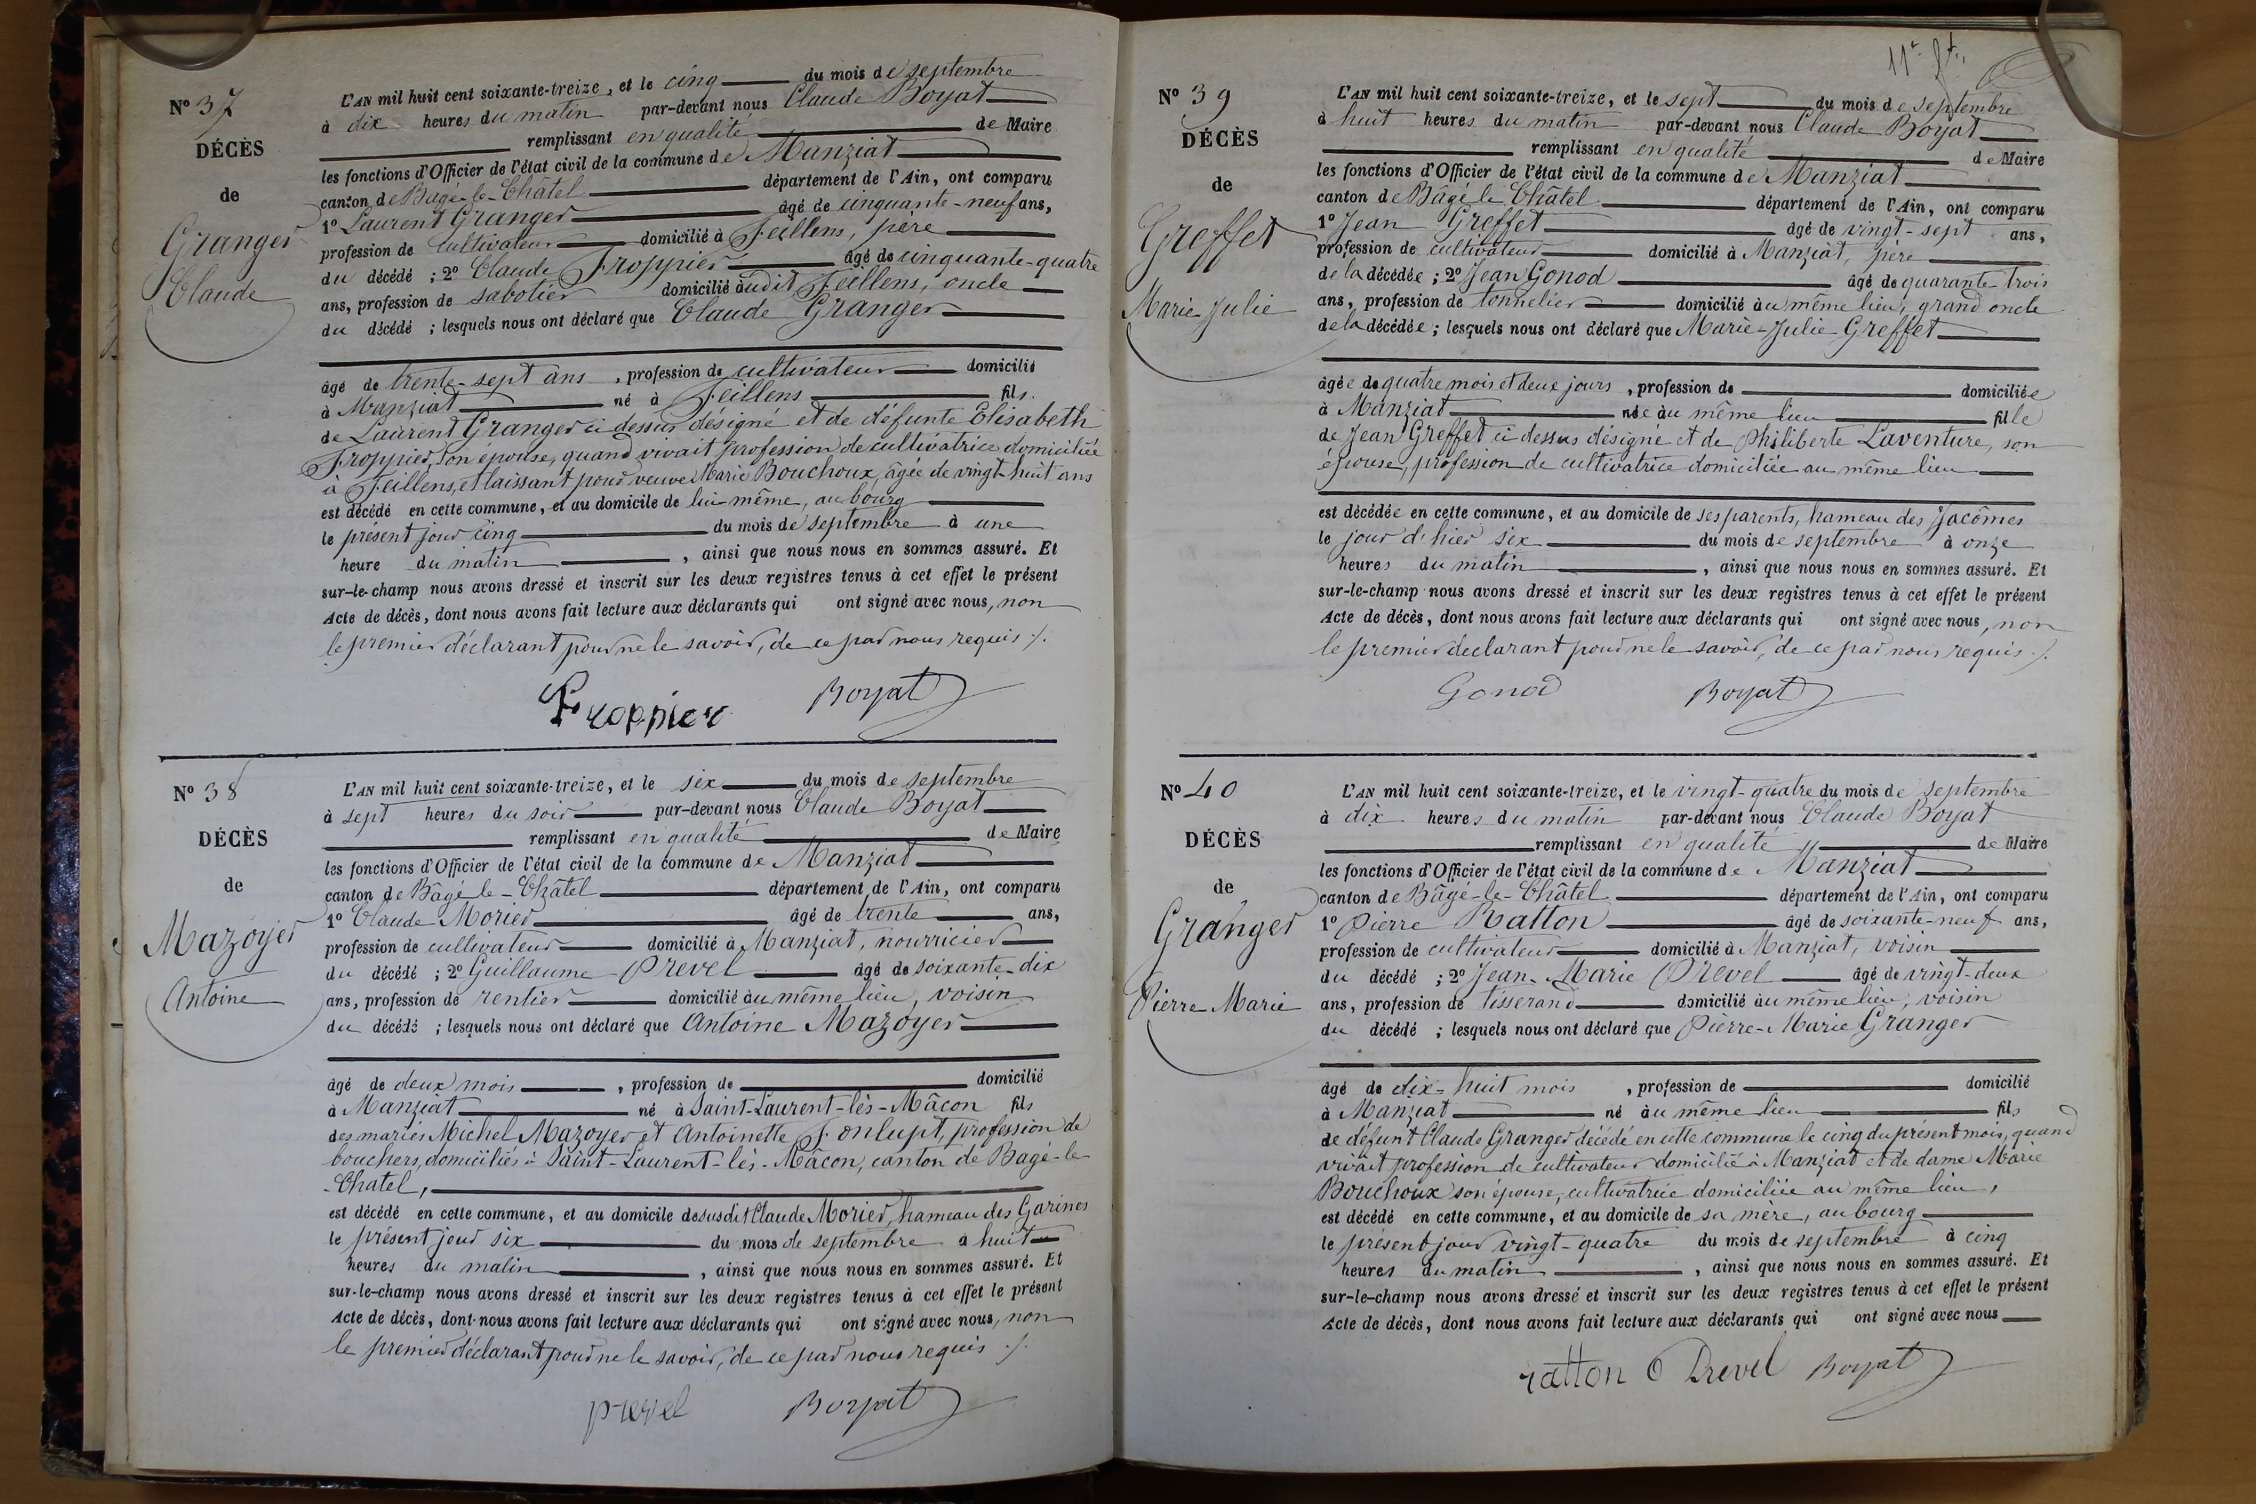 N° 37
DÉCÈS
de
Granger
Claude
L'AN mil huit cent soixante-treize, et le cinq du mois de septembre
à dix heures du matin par-devant nous Claude Boyat
remplissant en qualité de Maire
les fonctions d'Officier de l'état civil de la commune de Manziat
canton de Bâgé-le-Châtel département de l'Ain, ont comparu
1° Laurent Granger âgé de cinquante-neuf ans,
profession de cultivateur domicilié à Feillens, père
du décédé ; 2° Claude Froppier âgé de cinquante-quatre
ans, profession de sabotier domicilié audit Feillens, oncle
du décédé ; lesquels nous ont déclaré que Claude Granger
âgé de trente-sept ans, profession de cultivateur domicilié
à Manziat né à Feillens fils
de Laurent Granger ci dessus désigné et de défunte Elisabeth
Froppier, son épouse, quand vivait profession de cultivatrice domiciliée
à Feillens, et laissant pour veuve Marie Bouchoux, âgée de vingt-huit ans
est décédé en cette commune, et au domicile de lui-même, au bourg
le présent jour cinq du mois de septembre à une
heure du matin, ainsi que nous nous en sommes assuré. Et
sur-le-champ nous avons dressé et inscrit sur les deux registres tenus à cet effet le présent
Acte de décès, dont nous avons fait lecture aux déclarants qui ont signé avec nous, non
le premier déclarant pour ne le savoir, de ce par nous requis ./.
Froppier Boyat
N° 38
DÉCÈS
de
Mazoyer
Antoine
L'AN mil huit cent soixante-treize, et le six du mois de septembre
à sept heures du soir par-devant nous Claude Boyat
remplissant en qualité de Maire
les fonctions d'Officier de l'état civil de la commune de Manziat
canton de Bâgé-le-Châtel département de l'Ain, ont comparu
1° Claude Morier âgé de trente ans,
profession de cultivateur domicilié à Manziat, nourricier
du décédé ; 2° Guillaume Prevel âgé de soixante-dix
ans, profession de rentier domicilié au même lieu, voisin
du décédé ; lesquels nous ont déclaré que Antoine Mazoyer
âgé de deux mois, profession de domicilié
à Manziat né à Saint-Laurent-lès-Mâcon fils
des mariés Michel Mazoyer et Antoinette Fonlupt, profession de
bouchers, domiciliés à Saint-Laurent-lès-Mâcon, canton de Bagé-le
-Chatel,
est décédé en cette commune, et au domicile de susdit Claude Morier, hameau des Garines
le présent jour six du mois de septembre à huit
heures du matin, ainsi que nous nous en sommes assuré. Et
sur-le-champ nous avons dressé et inscrit sur les deux registres tenus à cet effet le présent
Acte de décès, dont nous avons fait lecture aux déclarants qui ont signé avec nous, non
le premier déclarant pour ne le savoir, de ce par nous requis ./.
prevel Boyat
N° 39
DÉCÈS
de
Greffet
Marie-Julie
L'AN mil huit cent soixante-treize, et le sept du mois de septembre
à huit heures du matin par-devant nous Claude Boyat
remplissant en qualité de Maire
les fonctions d'Officier de l'état civil de la commune de Manziat
canton de Bâgé le Châtel département de l'Ain, ont comparu
1° Jean Greffet âgé de vingt-sept ans,
profession de cultivateur domicilié à Manziat, père
de la décédée ; 2° Jean Gonod âgé de quarante trois
ans, profession de tonnelier domicilié au même lieu, grand oncle
de la décédée ; lesquels nous ont déclaré que Marie-Julie Greffet
âgée de quatre mois et deux jours, profession de domiciliée
à Manziat née au même lieu fille
de Jean Greffet ci dessus désigné et de Philiberte Laventure, son
épouse, profession de cultivatrice domiciliée au même lieu
est décédée en cette commune, et au domicile de ses parents, hameau des Jacômes
le jour d'hier six du mois de septembre à onze
heures du matin, ainsi que nous nous en sommes assuré. Et
sur-le-champ nous avons dressé et inscrit sur les deux registres tenus à cet effet le présent
Acte de décès, dont nous avons fait lecture aux déclarants qui ont signé avec nous, non
le premier déclarant pour ne le savoir, de ce par nous requis ./.
Gonod Boyat
N° 40
DÉCÈS
de
Granger
Pierre-Marie
L'AN mil huit cent soixante-treize, et le vingt-quatre du mois de septembre
à dix heures du matin par-devant nous Claude Boyat
remplissant en qualité de Maire
les fonctions d'Officier de l'état civil de la commune de Manziat
canton de Bâgé-le-Châtel département de l'Ain, ont comparu
1° Pierre Ratton âgé de soixante-neuf ans,
profession de cultivateur domicilié à Manziat, voisin
du décédé ; 2° Jean-Marie Prevel âgé de vingt-deux
ans, profession de tisserand domicilié au même lieu, voisin
du décédé ; lesquels nous ont déclaré que Pierre-Marie Granger
âgé de dix-huit mois, profession de domicilié
à Manziat né au même lieu fils
de défunt Claude Granger décédé en cette commune le cinq du présent mois, quand
vivait profession de cultivateur domicilié à Manziat et de dame Marie
Bouchoux son épouse, cultivatrice domiciliée au même lieu,
est décédé en cette commune, et au domicile de sa mère, au bourg
le présent jour vingt-quatre du mois de septembre à cinq
heures du matin, ainsi que nous nous en sommes assuré. Et
sur-le-champ nous avons dressé et inscrit sur les deux registres tenus à cet effet le présent
Acte de décès, dont nous avons fait lecture aux déclarants qui ont signé avec nous
ratton Prevel Boyat